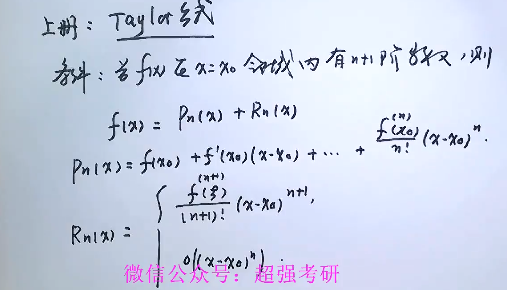 上册: Taylor级
条件: 若f(x)在x=x₀邻域内有n+1阶导数,则
f(x) = Pn(x) + Rn(x)
Pn(x) = f(x₀) + f'(x₀)(x-x₀) + ··· + f⁽ⁿ⁾(x₀)/n! (x-x₀)ⁿ.
Rn(x) = { f⁽ⁿ⁺¹⁾(ξ)/(n+1)! (x-x₀)ⁿ⁺¹,
o((x-x₀)ⁿ).
微信公众号: 超强考研